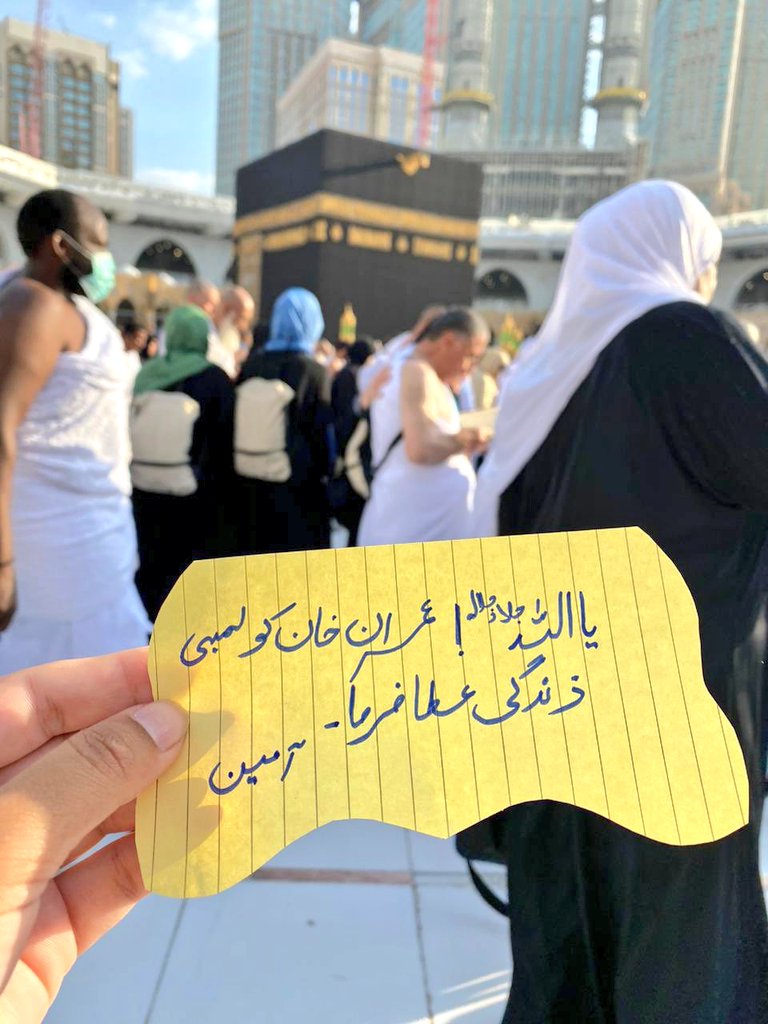 یا اللہ جل جلالہ! عمران خان کو لمبی
زندگی عطا فرما۔
آمین